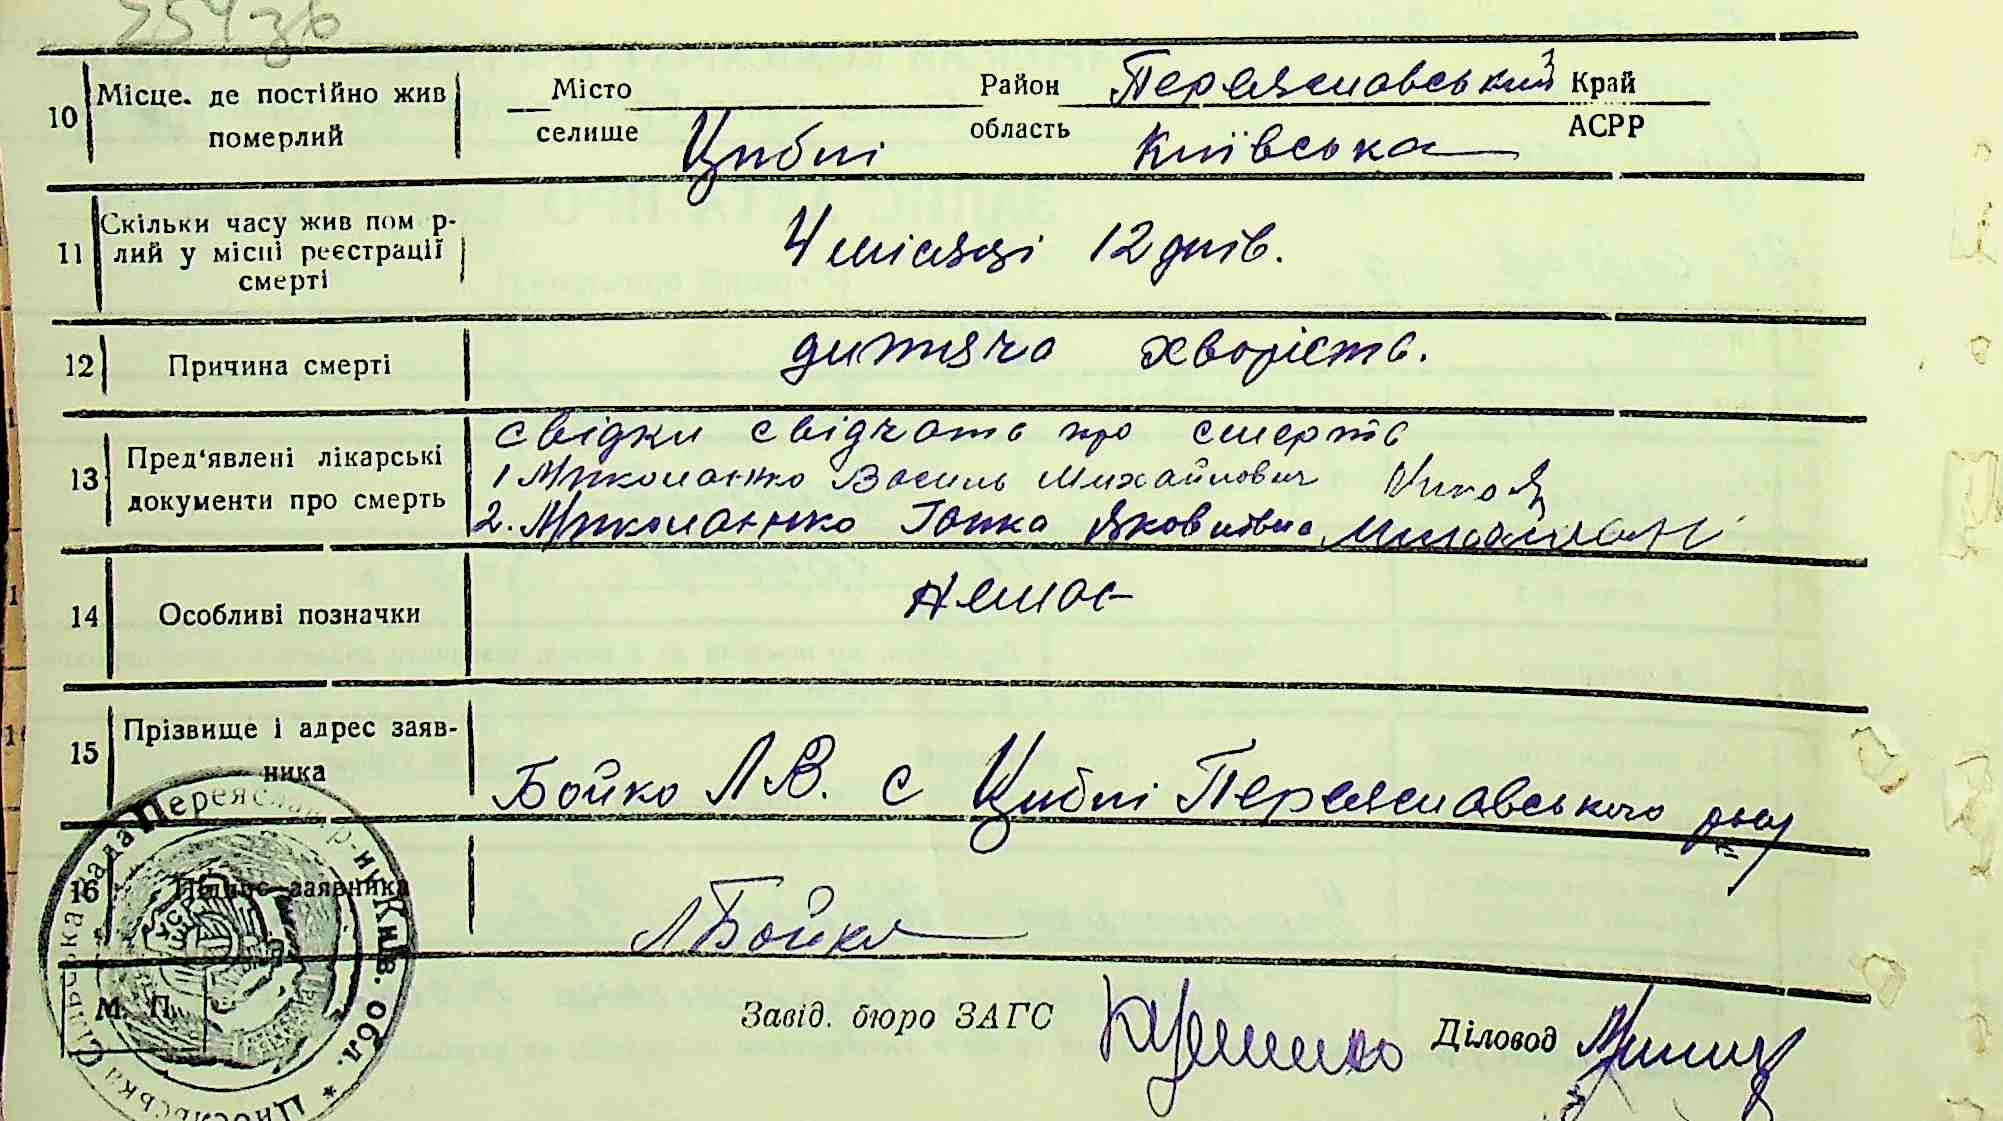 25436
10 Місце. де постійно жив померлий
Місто селище Циблі
Район область Переяславський Київська
Край АСРР
11 Скільки часу жив пом р-
лий у місці реєстрації
смерті
4 місяці 12 днів.
12 Причина смерті
дитяча хворість.
13 Пред'явлені лікарські
документи про смерть
свідки свідчать про смерть
1 Миколаенко Василь Михайлович
2. Миколаенко Ганка Яковлівна
14 Особливі позначки
немає
15 Прізвище і адрес заяв-
ника
Бойко Л.В. с Циблі Переяславського р-ну
16 Підпис заявника
ЛБойко
М. П.
Завід. бюро ЗАГС
Діловод
Сільська Рада Переяслав р-ну Київ. обл. * УСРР